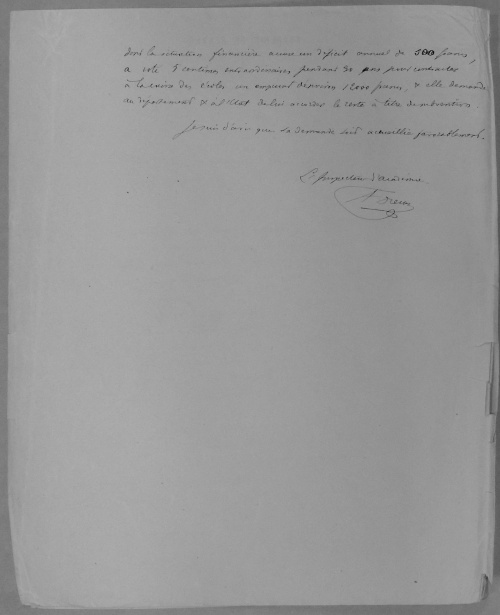 dont la situation financière accuse un déficit annuel de 500 francs,
a voté 5 centimes extraordinaires pendant 30 ans pour contracter
à la caisse des écoles un emprunt de 12000 francs, & elle demande
au département & à l'Etat de lui accorder le reste à titre de subvention.
Je suis d'avis que la demande soit accueillie favorablement.
L'Inspecteur d'académie